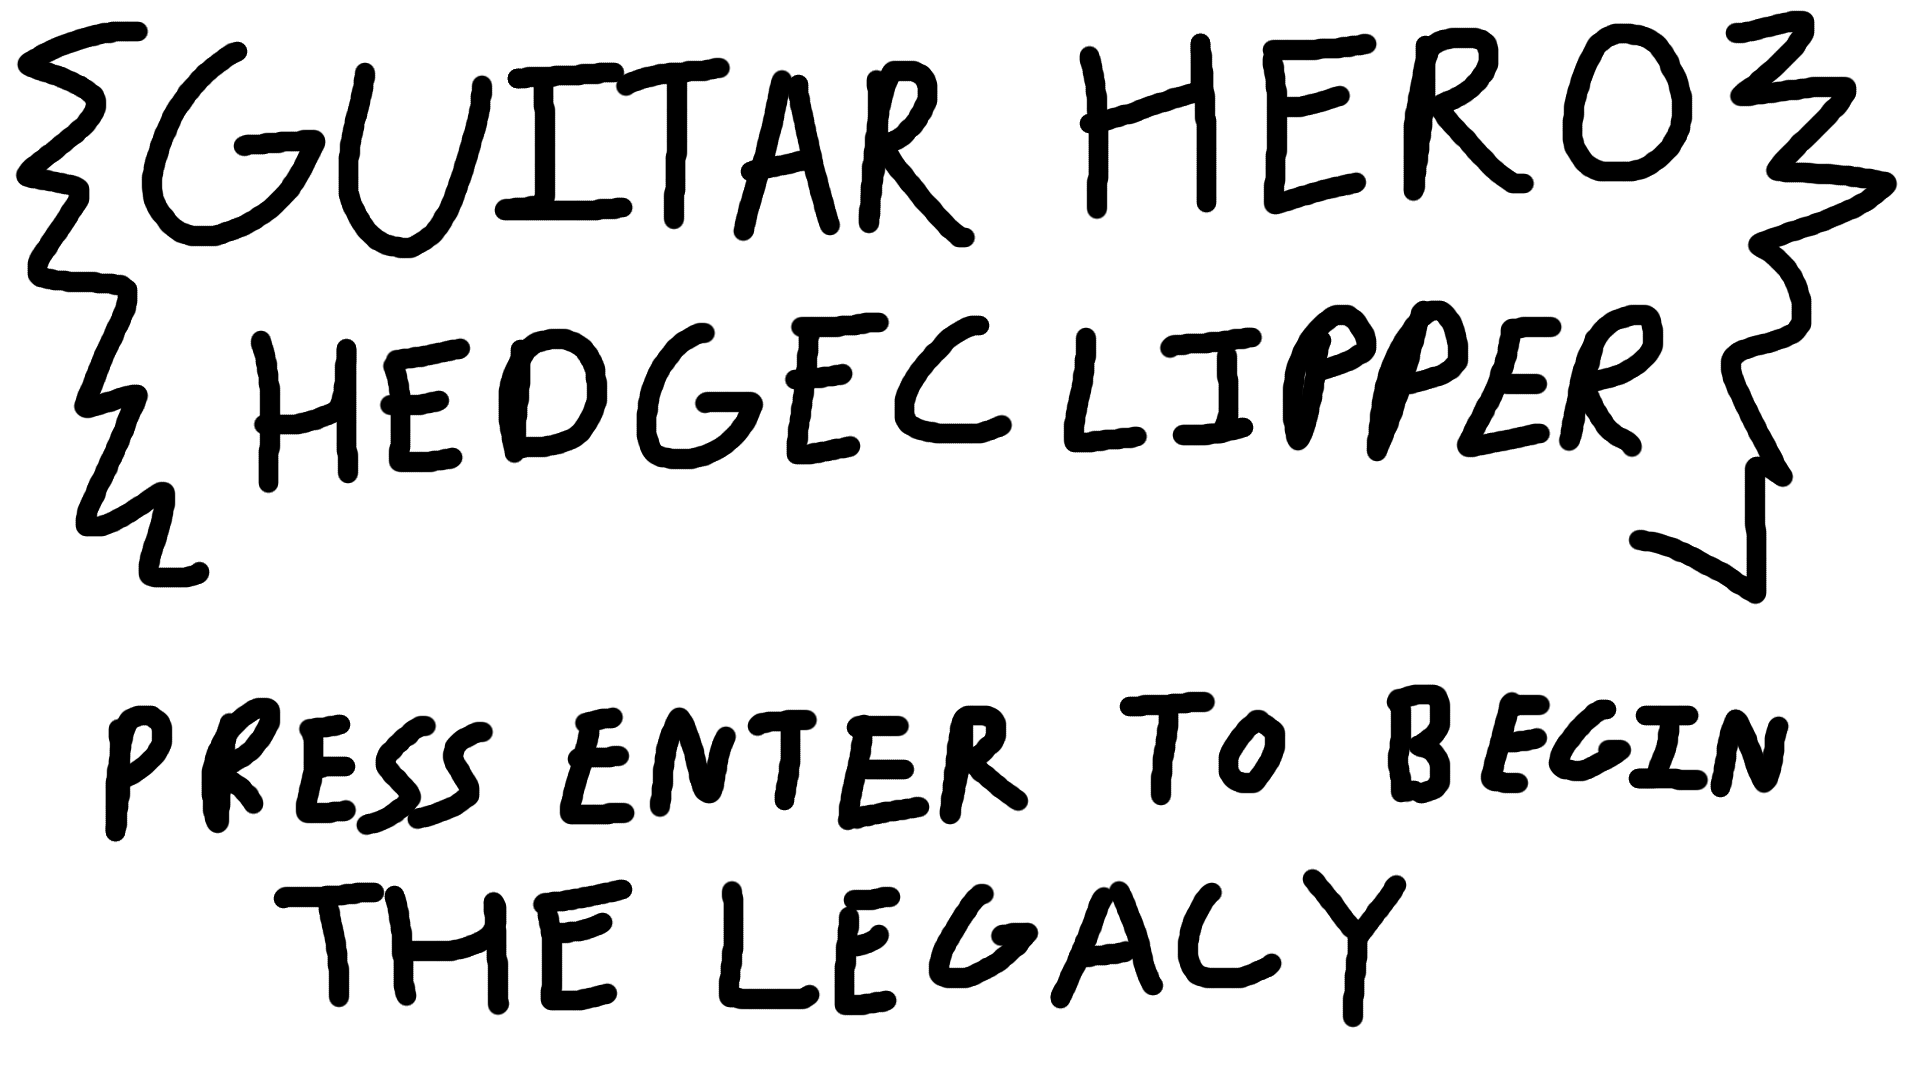 GUITAR HERO
HEDGECLIPPER
PRESS ENTER TO BEGIN
THE LEGACY